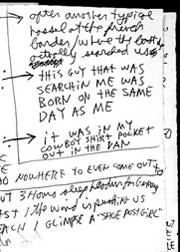 after another typical
hassel at the french
border/where the
actually searched us
THIS GUY THAT WAS
SEARCHIN ME WAS
BORN ON THE SAME
DAY AS ME
IT WAS IN MY
COWBOY SHIRT POCKET
OUT IN THE VAN
NOWHERE TO EVEN COME OUT
3 HOURS sleep
THE wind is US
I GLIMPSE A "SHOE POST GIRL"